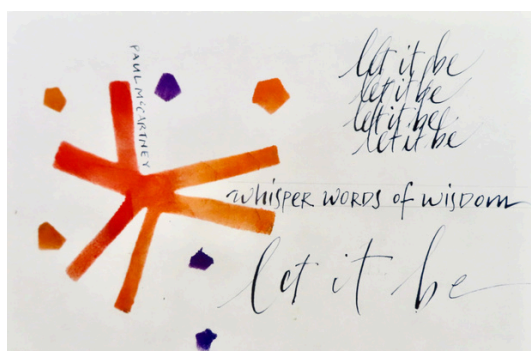 PAUL McCARTNEY
let it be
let it be
let it be
let it be
whisper words of wisdom
let it be